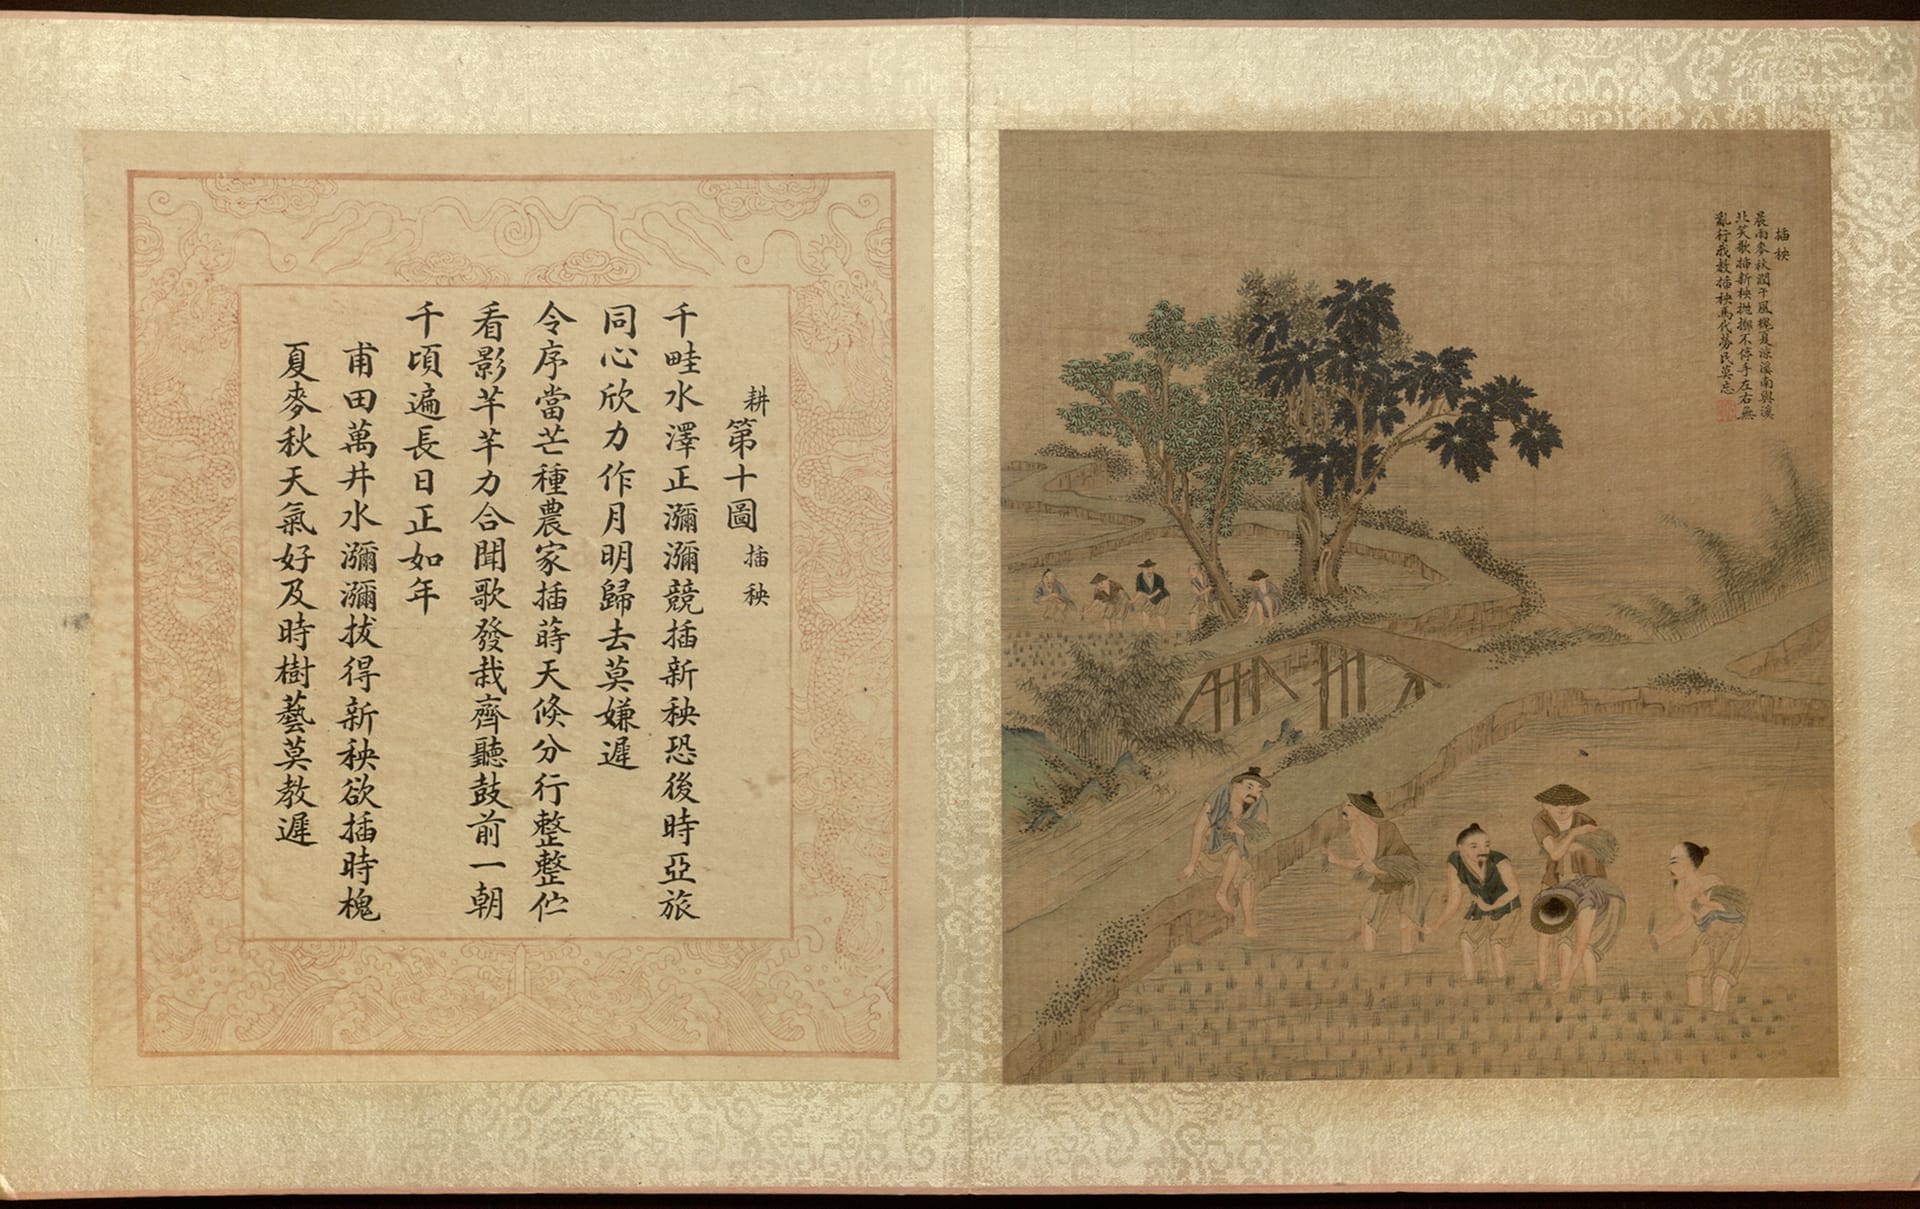 插秧
晨雨麥秋潤午風槐夏涼溪南與溪
北笑歌插新秧拋擲不停手左右無
亂行我教插秧馬代勞民莫忘
耕第十圖 插秧
千畦水澤正瀰瀰競插新秧恐後時亞旅
同心欣力作月明歸去莫嫌遲
令序當芒種農家插蒔天倐分行整整伫
看影芊芊力合聞歌發栽齊聽鼓前一朝
千頃遍長日正如年
甫田萬井水瀰瀰拔得新秧欲插時槐
夏麥秋天氣好及時樹藝莫教遲